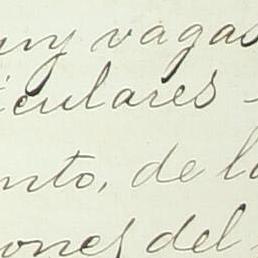 uy vagas
iculares
nto, de la
ones del